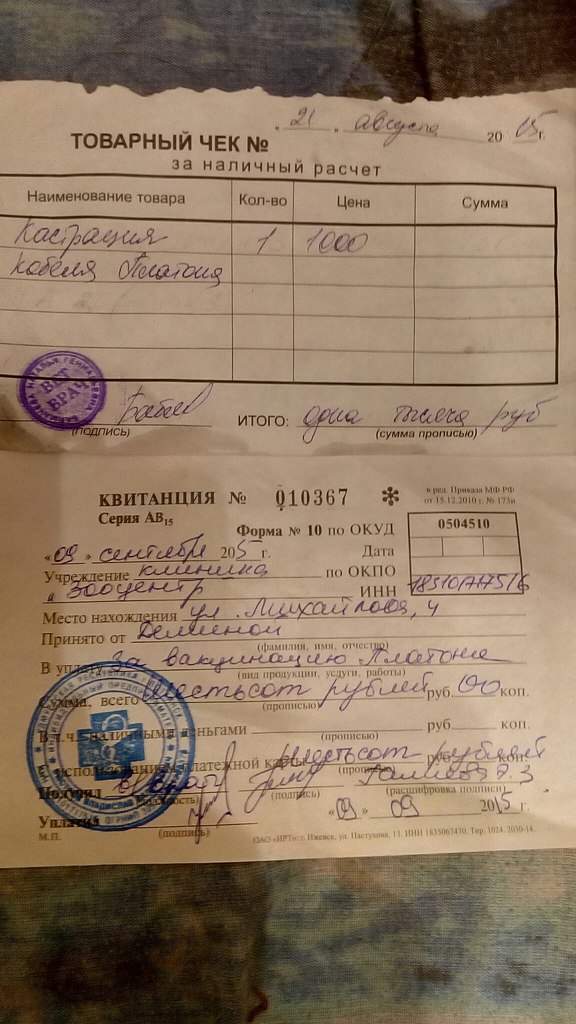 21 августа 2015 г.
ТОВАРНЫЙ ЧЕК №
за наличный расчет
Наименование товара Кол-во Цена Сумма
Кастрация 1 1000
кобеля Платона
ВЕТ ВРАЧ
(подпись)
ИТОГО: одна тысяча руб
(сумма прописью)
КВИТАНЦИЯ № 010367
в ред. Приказа МФ РФ
от 15.12.2010 г. № 173н
Серия АВ15
Форма № 10 по ОКУД 0504510
«09» сентября 2015 г. Дата
Учреждение клиника по ОКПО
"Зооцентр ИНН
Место нахождения ул. Михайлова, 4
Принято от Деминой
(фамилия, имя, отчество)
В уплату за вакцинацию Платона
(вид продукции, услуги, работы)
Сумма, всего шестьсот рублей руб. 00 коп.
(прописью)
В т.ч. наличными деньгами руб. коп.
(прописью)
с использованием платежной карты шестьсот рублей коп.
Получил врач
(должность) (подпись) (расшифровка подписи)
Уплатил «09» 09 2015 г.
(подпись)
М.П.